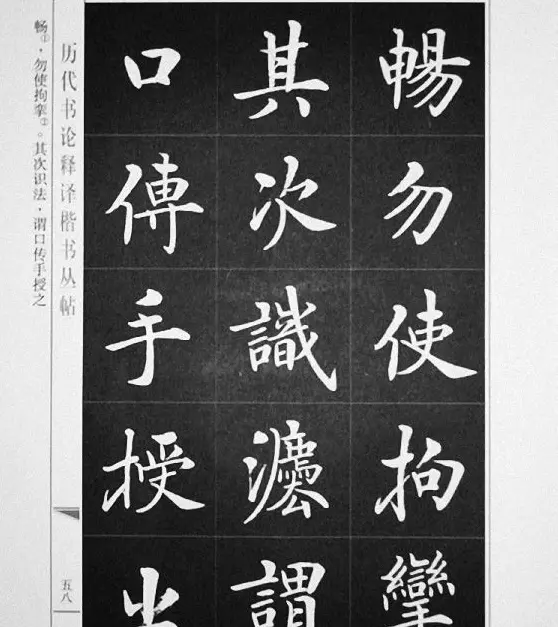 暢勿使拘攣
其次識灋謂
口傳手授之
历代书论释译楷书丛帖
五八
畅①，勿使拘挛②。其次识法，谓口传手授之